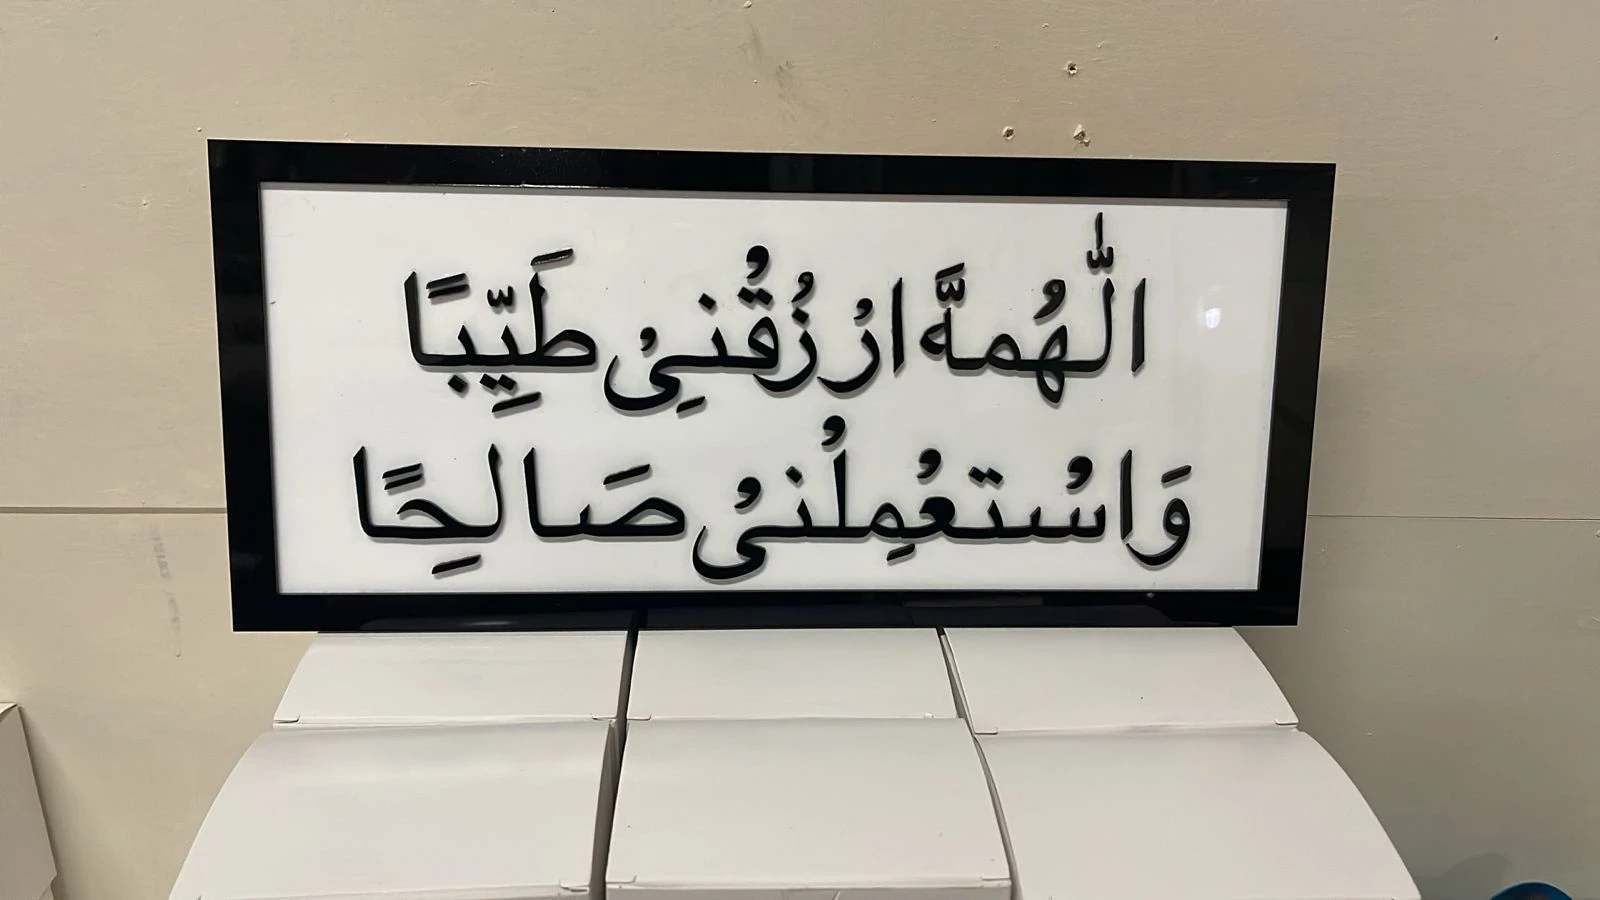 الّٰهُمهَّ ارْزُقْنِىْ طَيِّبًا
وَاسْتعْمِلْنىْ صَالِحًا